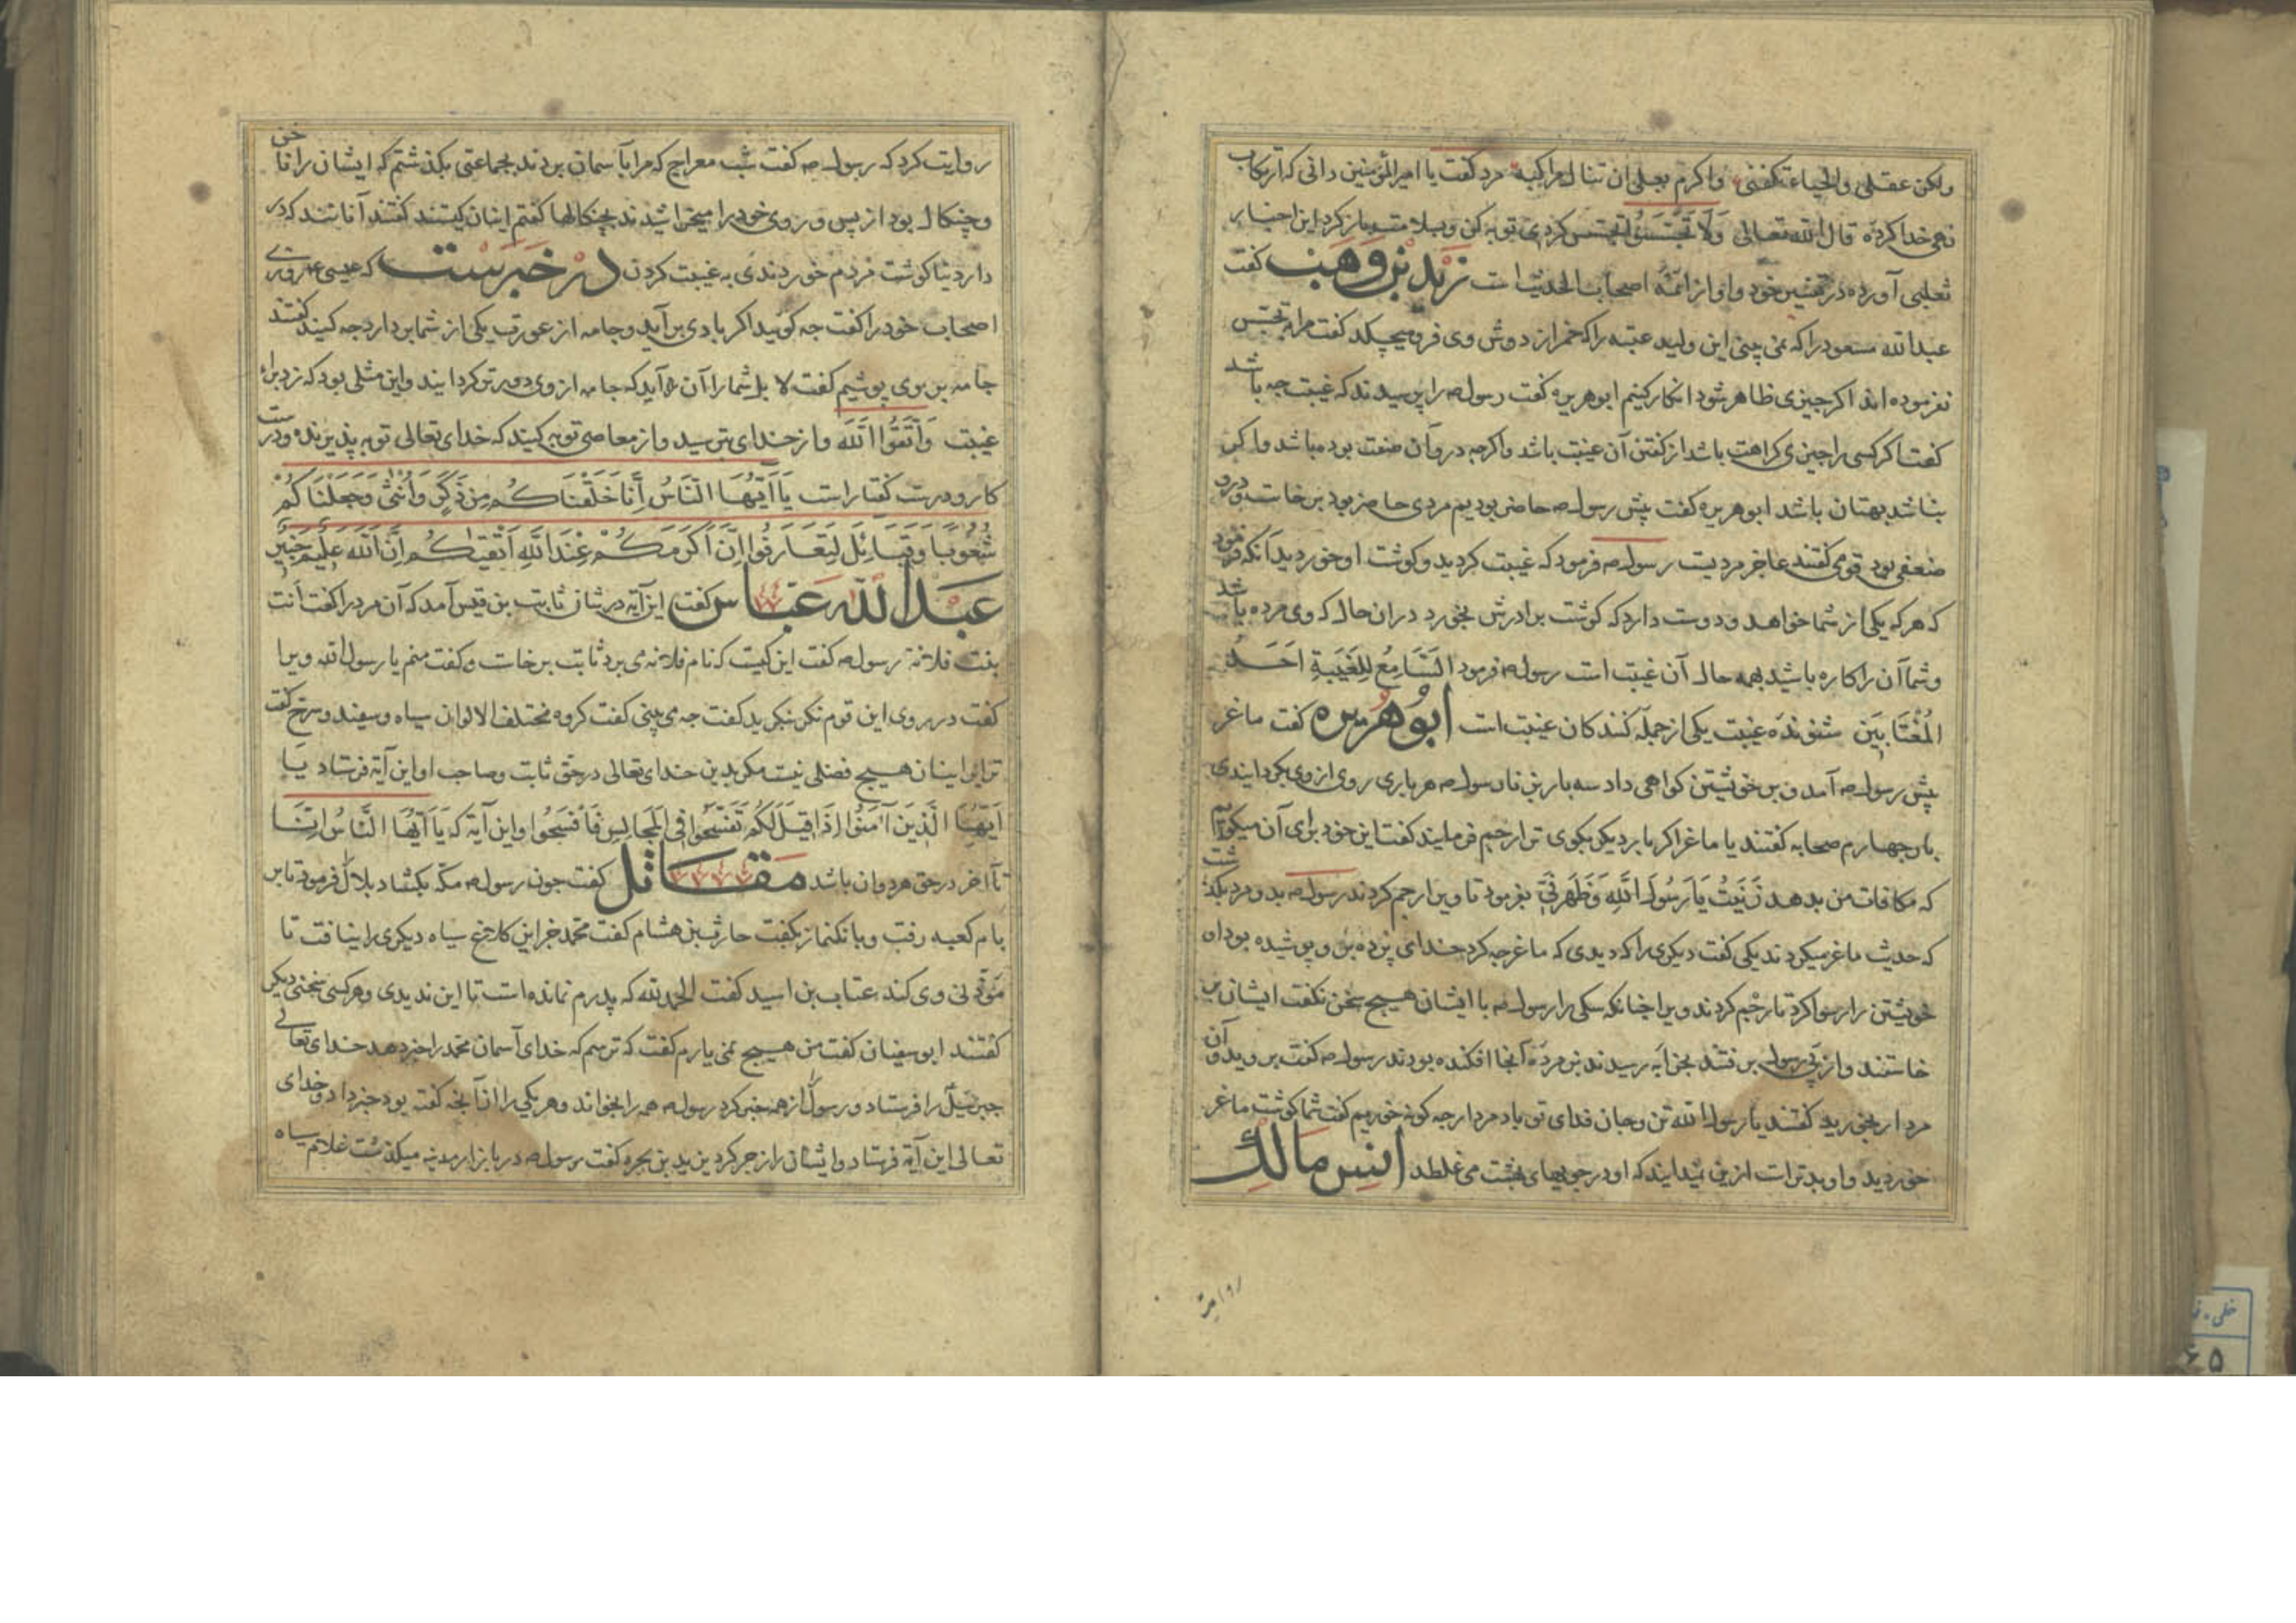 ولکن عقلی والحیاء تکفنی واکرم بعلی ان تنال مراکبه مرد کفت یا امیرالمؤمنین دانی که ارتکاب
نهی خدا کرده قال الله تعالی وَلَا تَجَسَّسُوا تجسس کردی توبه کن وبلا متب باز کرد این اخبار
ثعلبی آورده در تفسیر خود واو از ائمه اصحاب الحدیث است زید بن وهب کفت
عبدالله مسعود را که نمی بینی این ولید عتبه را که خمر از دوش وی فرو میچکد کفت مرا بتجسس
نفرموده اند اکر چیزی ظاهر شود انکار کنیم ابوهریره کفت رسول ص را پرسیدند که غیبت جه باشد
کفت اکر کسی را چیزی کراهت باشد از کفتن آن غیبت باشد واکرچه در وآن صفت بود میباشد واکر
نباشد بهتان باشد ابوهریره کفت پیش رسول ص حاضر بودیم مردی حاضر بود برخاست ودرو
ضعفی بود قومی کفتند عاجز مردیست رسول ص فرمود که غیبت کردید وکوشت او خوردید آنکه فرمود
که هرکه یکی از شما خواهد ودوست دارد که کوشت برادرش بخورد در ان حال که وی مرده باشد
وشما آن را کاره باشید بهمه حال آن غیبت است رسول ص فرمود السَّامِعُ لِلْغَیبَةِ اَحَدُ
الْمُغْتَابِینَ شنونده غیبت یکی از جمله کنندکان غیبت است ابوهریره کفت ماغر
پیش رسول ص آمد وبر خویشتن کواهی داد سه بار بزنا رسول ص هر باری روی از وی بکردانیدی
بار جهارم صحابه کفتند یا ماغر اکر بار دیکر بکوی ترا رجم فرمایند کفت این خود برای آن میکویم
که مکافات من بدهد زَنَیْتُ یَا رَسُولَ اللهِ وَطَهِّرْنِی بفرمود تا ویرا رجم کردند رسول ص بدو مرد بکذشت
که حدیث ماغر میکردند یکی کفت دیکری را که دیدی که ماغر جه کرد خدای پرده برو پوشیده بود او
خویشتن را رسوا کرد تا رجم کردند ویرا جنانکه سکی را رسول ص با ایشان هیچ سخن نکفت ایشان بر
خاستند واز پی رسول برفتند بخرابه رسیدند بز مرده آنجا افکنده بودند رسول ص کفت بروید وآن
مردار بخورید کفتند یا رسول الله تن وجان فدای تو باد مردار جه کونه خوریم کفت شما کوشت ماغر
خوردید واو بدتر است ازین نمیدانید که او در جویهای بهشت می غلطد انس مالک
روایت
روایت کرد که رسول ص کفت شب معراج که مرا بآسمان بردند بجماعتی بکذشتم که ایشان را ناخن
وچنکال بود از پس وروی خود را میخراشیدند بچنکالها کفتم اینان کیستند کفتند آنانند که در
دار دنیا کوشت مردم خوردندی به غیبت کردن در خبرست که عیسی ع روزی
اصحاب خود را کفت جه کوئید اکر بادی برآید وجامه از عورت یکی از شما بردارد جه کنید کفتند
جامه بر وی پوشیم کفت لا بل شما را آن آید که جامه از وی دورتر کردانند واین مثلی بود که زد برای
غیبت وَاتَّقُوا اللهَ واز خدای بترسید واز معاصی توبه کنید که خدای تعالی توبه پذیرنده ودرست
کار ودرست کفتار است یَا اَیُّهَا النَّاسُ اِنَّا خَلَقْنَاکُمْ مِن ذَکَرٍ وَاُنْثی وَجَعَلْنَاکُمْ
شُعُوبًا وَقَبَائِلَ لِتَعَارَفُوا اِنَّ اَکْرَمَکُمْ عِنْدَ اللهِ اَتْقیکُمْ اِنَّ اللهَ عَلِیمٌ خَبِیرٌ
عبدالله عباس کفت این آیه در شان ثابت بن قیس آمد که آن مرد را کفت انت
بنت فلانة رسول ص کفت این کیست که نام فلانه می برد ثابت برخاست وکفت منم یا رسول الله ویرا
کفت در روی این قوم نکر بنکرید کفت جه می بینی کفت کروه مختلف الالوان سیاه وسفید وسرخ کفت
ترا بر اینان هیچ فضلی نیست مکر بدین خدای تعالی در حق ثابت وصاحب او این آیة فرستاد یَا
اَیُّهَا الَّذِینَ آمَنُوا اِذَا قِیلَ لَکُمْ تَفَسَّحُوا فِی الْمَجَالِسِ فَافْسَحُوا واین آیة که یَا اَیُّهَا النَّاسُ اِنَّا
تا آخر در حق هردوان باشد مقاتل کفت جون رسول ص مکه بکشاد بلال فرمود تا بر
بام کعبه رفت وبانک نماز بکفت حارث بن هشام کفت محمد جز این کلاغ سیاه دیکری را نیافت تا
مؤذنی وی کند عتاب بن اسید کفت الحمدلله که پدرم نمانده است تا این ندیدی وهرکسی سخنی دیکر
کفتند ابوسفیان کفت من هیچ نمی یارم کفت که ترسم که خدای آسمان محمد را خبر دهد خدای تعالی
جبرئیل را فرستاد ورسول از همه خبر کرد رسول ص همه را بخواند وهریکی را از آنجه کفته بود خبر داد وخدای
تعالی این آیة فرستاد وایشان را زجر کرد یزید بن شجره کفت رسول ص در بازار مدینه میکذشت غلام سیاه